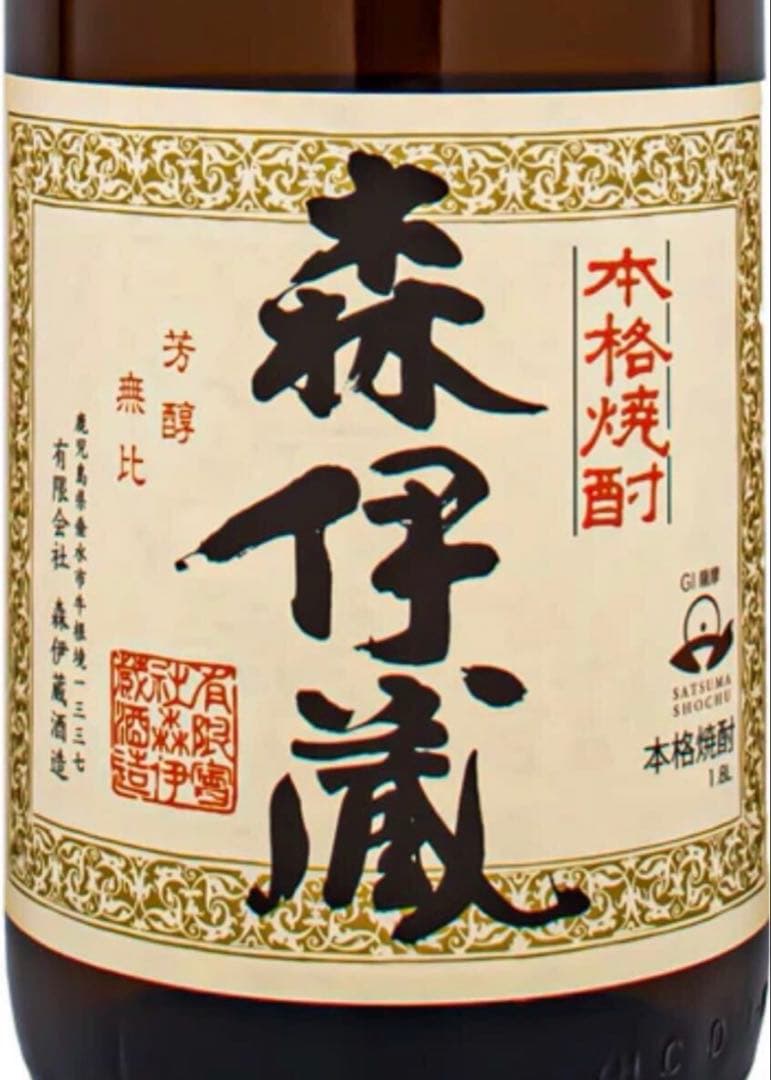 本格焼酎
森伊蔵
芳醇
無比
鹿児島県垂水市牛根境一三三七
有限会社 森伊蔵酒造
有限会
社森伊
蔵酒造
GI 薩摩
SATSUMA
SHOCHU
本格焼酎
1.8L